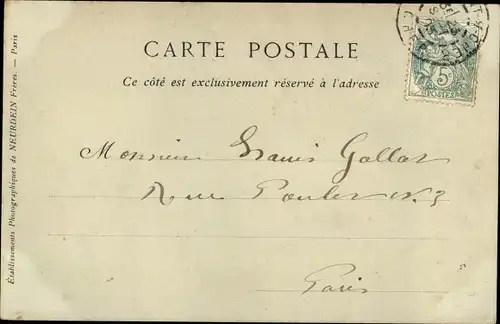 CARTE POSTALE
Ce côté est exclusivement réservé à l'adresse
5
POSTES
Monsieur Louis Gallas
Rue Poulet N. 3
Paris
Établissements Photographiques de NEURDEIN Frères. — Paris